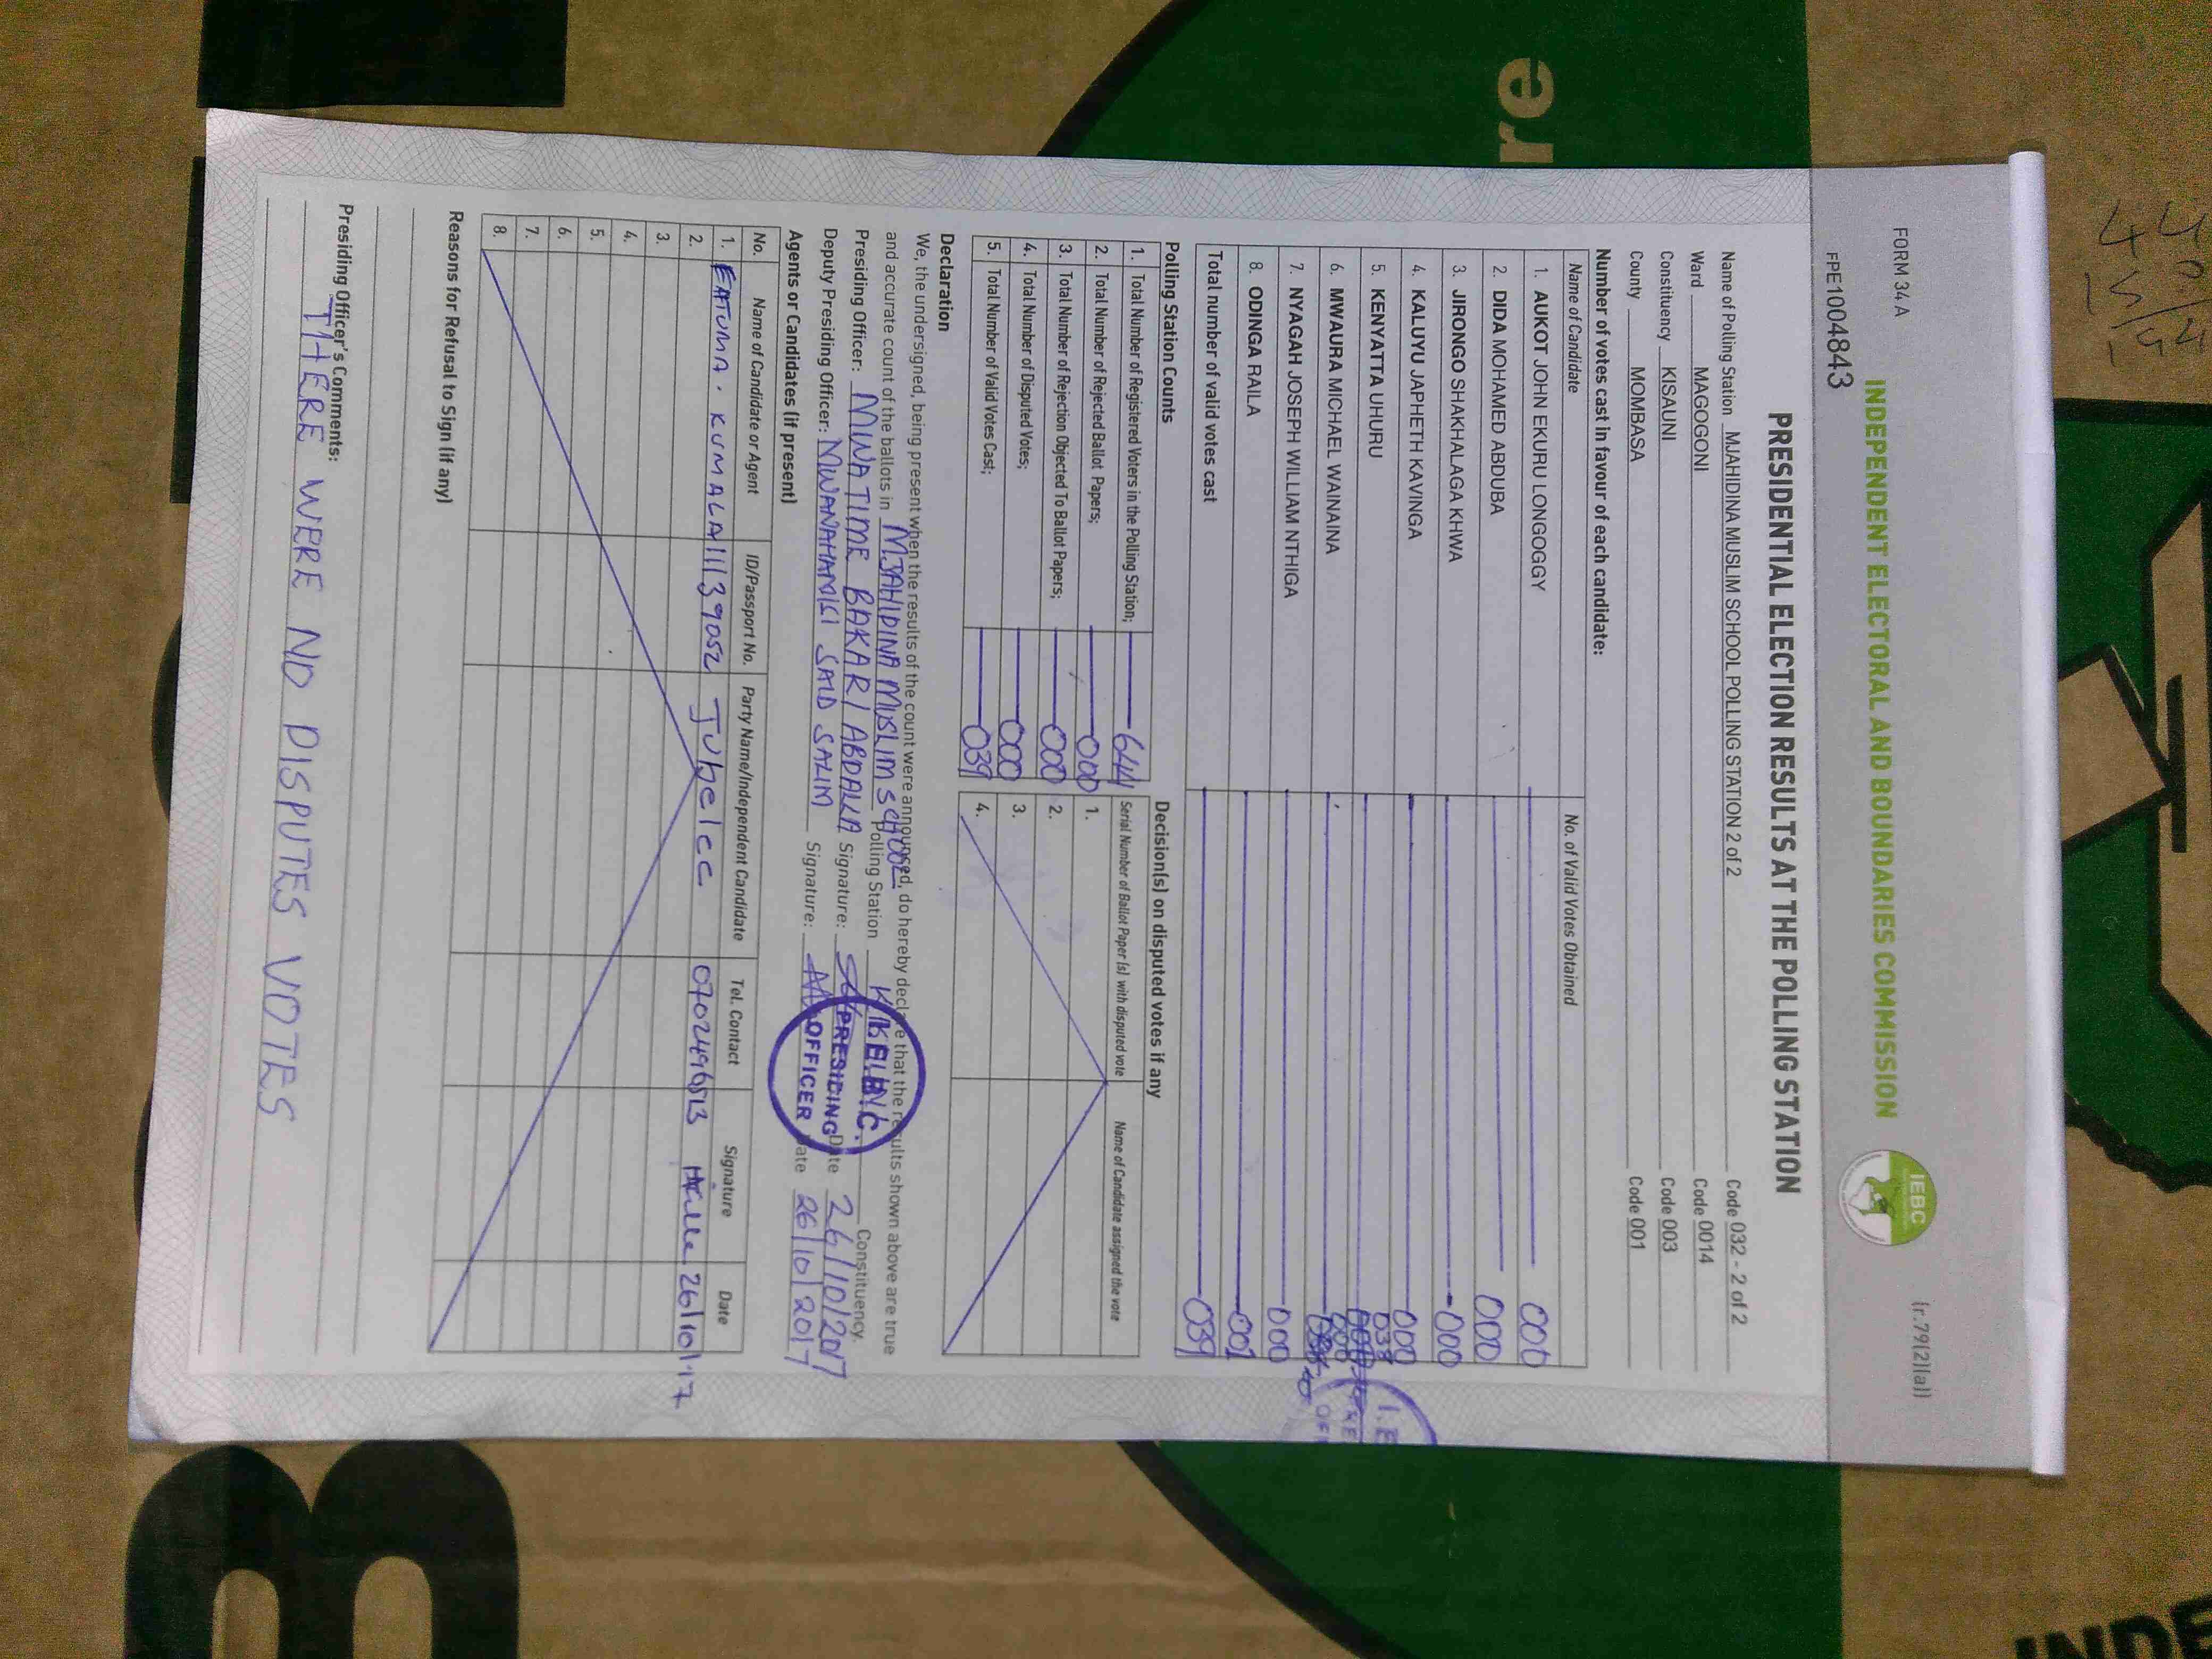 FORM 34 A
(r.79(2)(a))
INDEPENDENT ELECTORAL AND BOUNDARIES COMMISSION
IEBC
FPE1004843
PRESIDENTIAL ELECTION RESULTS AT THE POLLING STATION
Name of Polling Station MJAHIDINA MUSLIM SCHOOL POLLING STATION 2 of 2 Code 032 - 2 of 2
Ward MAGOGONI Code 0014
Constituency KISAUNI Code 003
County MOMBASA Code 001
Number of votes cast in favour of each candidate:
Name of Candidate No. of Valid Votes Obtained
1. AUKOT JOHN EKURU LONGOGGY 000
2. DIDA MOHAMED ABDUBA 000
3. JIRONGO SHAKHALAGA KHWA 000
4. KALUYU JAPHETH KAVINGA 000
5. KENYATTA UHURU 038
6. MWAURA MICHAEL WAINAINA 000
7. NYAGAH JOSEPH WILLIAM NTHIGA 000
8. ODINGA RAILA 001
Total number of valid votes cast 039
Polling Station Counts
1. Total Number of Registered Voters in the Polling Station; 641
2. Total Number of Rejected Ballot Papers; 000
3. Total Number of Rejection Objected To Ballot Papers; 000
4. Total Number of Disputed Votes; 000
5. Total Number of Valid Votes Cast; 039
Decision(s) on disputed votes if any
Serial Number of Ballot Paper (s) with disputed vote Name of Candidate assigned the vote
1.
2.
3.
4.
Declaration
We, the undersigned, being present when the results of the count were announced, do hereby declare that the results shown above are true
and accurate count of the ballots in MJAHIDINA MUSLIM SCHOOL Polling Station Constituency.
Presiding Officer: MWATIME BAKARI ABDALLA Signature: Date 26/10/2017
Deputy Presiding Officer: MWANAHAMISI SAID SALIM Signature: Date 26/10/2017
I.E.B.C.
PRESIDING
OFFICER
Agents or Candidates (if present)
No. Name of Candidate or Agent ID/Passport No. Party Name/Independent Candidate Tel. Contact Signature Date
1. FATUMA. KUMALA 11139052 Jubelee 0702496513 26/10/17
2.
3.
4.
5.
6.
7.
8.
Reasons for Refusal to Sign (if any)
Presiding Officer's Comments:
THERE WERE NO DISPUTES VOTES
re
B
INDE